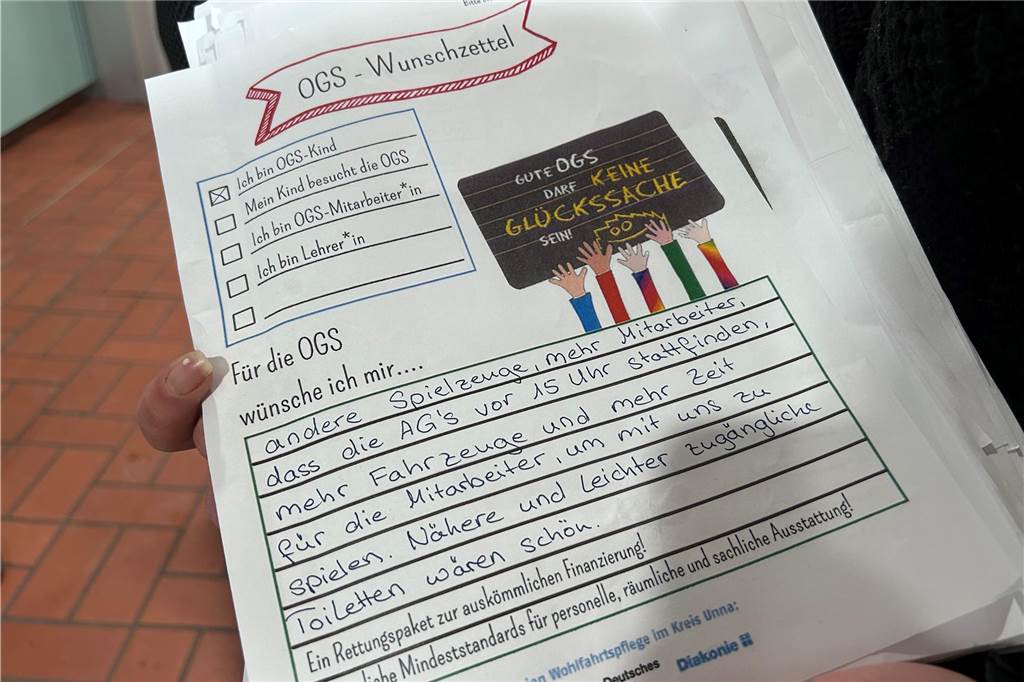 OGS - Wunschzettel
Ich bin OGS-Kind
Mein Kind besucht die OGS
Ich bin OGS-Mitarbeiter*in
Ich bin Lehrer*in
GUTE OGS
DARF KEINE
GLÜCKSSACHE
SEIN!
Für die OGS
wünsche ich mir....
andere Spielzeuge, mehr Mitarbeiter,
dass die AG's vor 15 Uhr stattfinden,
mehr Fahrzeuge und mehr Zeit
für die Mitarbeiter, um mit uns zu
spielen. Nähere und leichter zugängliche
Toiletten wären schön.
Ein Rettungspaket zur auskömmlichen Finanzierung!
liche Mindeststandards für personelle, räumliche und sachliche Ausstattung!
ien Wohlfahrtspflege im Kreis Unna:
Deutsches
Diakonie